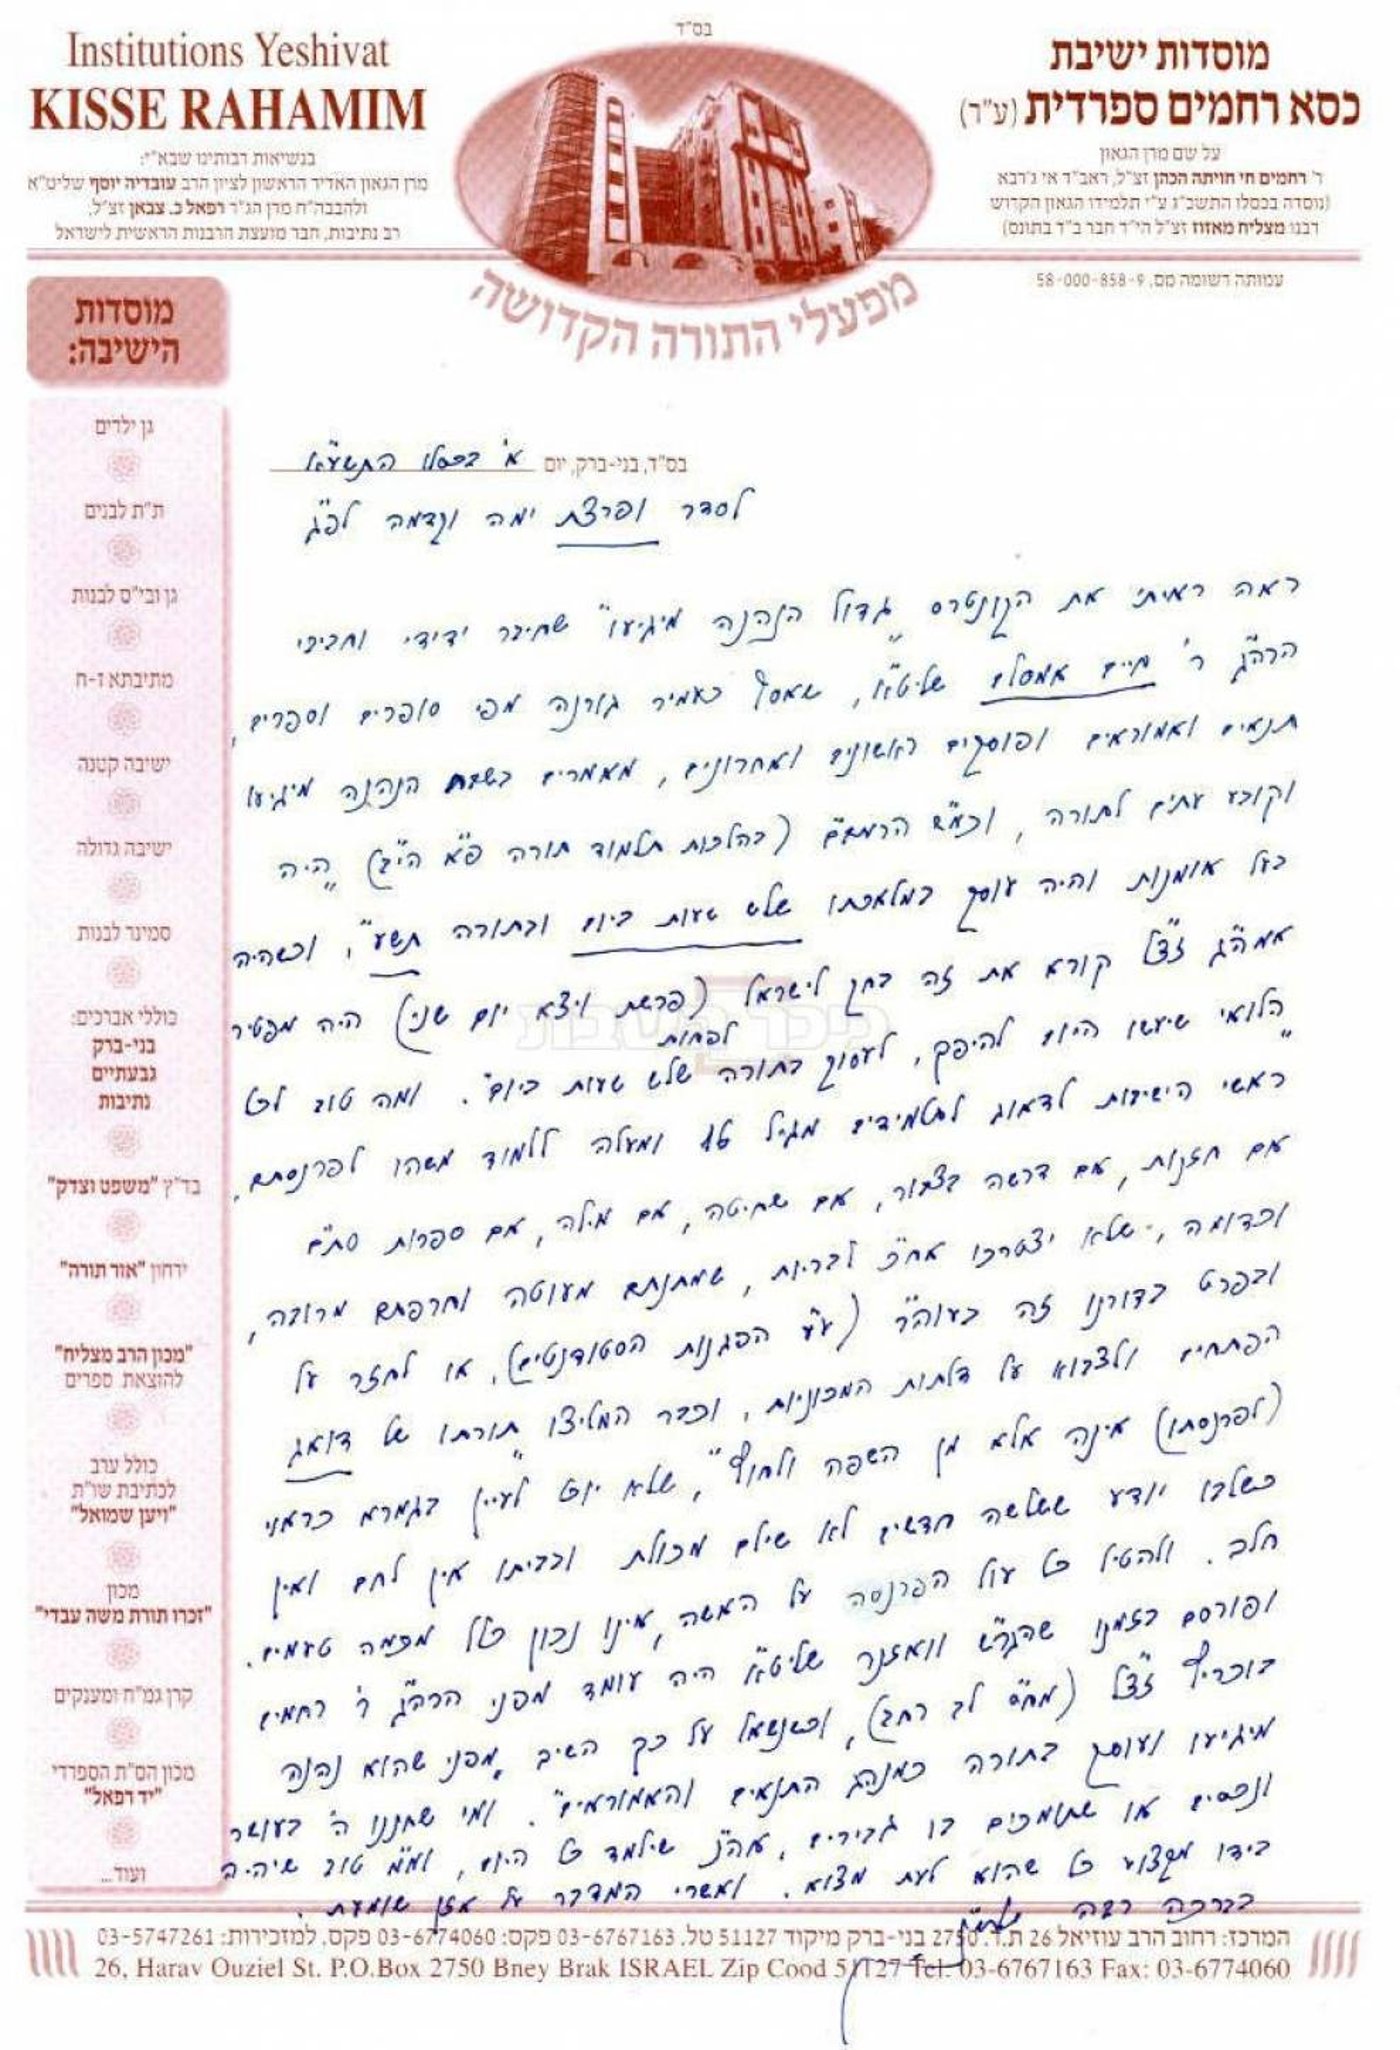 בס"ד
Institutions Yeshivat
KISSE RAHAMIM
בנשיאות רבותינו שבא"י:
מרן הגאון האדיר הראשון לציון הרב עובדיה יוסף שליט"א
ולהבבה"ח מרן הג"ר רפאל כ. צבאן זצ"ל,
רב נתיבות, חבר מועצת הרבנות הראשית לישראל
מוסדות ישיבת
כסא רחמים ספרדית (ע"ר)
על שם מרן הגאון
ר' רחמים חי חויתה הכהן זצ"ל, ראב"ד אי ג'רבא
(נוסדה בכסלו התשכ"ג ע"י תלמידו הגאון הקדוש
רבנו מצליח מאזוז זצ"ל הי"ד חבר ב"ד בתונס)
עמותה רשומה מס. 58-000-858-9
מפעלי התורה הקדושה
מוסדות
הישיבה:
גן ילדים
ת"ת לבנים
גן ובי"ס לבנות
מתיבתא ז-ח
ישיבה קטנה
ישיבה גדולה
סמינר לבנות
כוללי אברכים:
בני-ברק
גבעתיים
נתיבות
בד"ץ "משפט וצדק"
ירחון "אור תורה"
"מכון הרב מצליח"
להוצאת ספרים
כולל ערב
לכתיבת שו"ת
"ויען שמואל"
מכון
"זכרו תורת משה עבדי"
קרן גמ"ח ומענקים
מכון הס"ת הספרדי
"יד רפאל"
ועוד...
בס"ד, בני-ברק, יום א' בכסלו התשע"א
לסדר ופרצת ימה וקדמה לפ"ג
ראה ראיתי את הקונטרס "גדול הנהנה מיגיעו" שחיבר ידידי וחביבי
הרה"ג ר' חיים אמסלם שליט"א, שאסף כעמיר גורנה מפי סופרים וספרים,
תנאים ואמוראים ופוסקים ראשונים ואחרונים, מאמרים בשבח הנהנה מיגיעו
וקובע עתים לתורה, וכמ"ש הרמב"ם (בהלכות תלמוד תורה פ"א הי"ב) "היה
בעל אומנות והיה עוסק במלאכתו שלש שעות ביום ובתורה תשע", וכשהיה
אמה"ג זצ"ל קורא את זה בחק לישראל (פרשת ויצא יום שני) היה מפטיר
"הלואי שיעשו היום להיפך, לעסוק בתורה לפחות שלש שעות ביום". ומה טוב לכל
ראשי הישיבות לדאוג לתלמידים מגיל 16 ומעלה ללמוד משהו לפרנסתם,
אם חזנות, אם דרשה בצבור, אם שחיטה, אם מילה, אם ספרות סת"ם
וכדומה, שלא יצטרכו אח"כ לבריות, שמתנתם מעוטה וחרפתם מרובה,
ובפרט בדורנו זה בעוה"ר (ע"ע הפגנות הסטודנטים), או לחזר על
הפתחים ולצבוא על דלתות המכוניות, וכבר המליצו "תורתו של דואג
(לפרנסתו) אינה אלא מן השפה ולחוץ", שלא יוכל לעיין בגמרא כראוי
כשלבו יודע ששלשה חדשים לא שילם מכולת ובביתו אין לחם ואין
חלב. ולהטיל כל עול הפרנסה על האשה, אינו נכון כלל מכמה טעמים.
ופורסם בזמנו שהגר"ש וואזנר שליט"א היה עומד מפני הרה"ג ר' רחמים
בוכריץ זצ"ל (מח"ס לב רחב), וכשנשאל על כך השיב "מפני שהוא נהנה
מיגיעו ועוסק בתורה כמנהג התנאים והאמוראים". ומי שחננו ה' בעושר
ונכסים או שתומכים בו גבירים, אה"נ שילמד כל היום, ומ"מ טוב שיהיה
בידו מקצוע כל שהוא לעת מצוא. ואשרי המדבר על אזן שומעת.
בברכה רבה
המרכז: רחוב הרב עוזיאל 26 ת.ד. 2750 בני-ברק מיקוד 51127 טל. 03-6767163 פקס: 03-6774060 פקס. למזכירות: 03-5747261
26, Harav Ouziel St. P.O.Box 2750 Bney Brak ISRAEL Zip Cood 51127 Tel. 03-6767163 Fax: 03-6774060
כיכר השבת